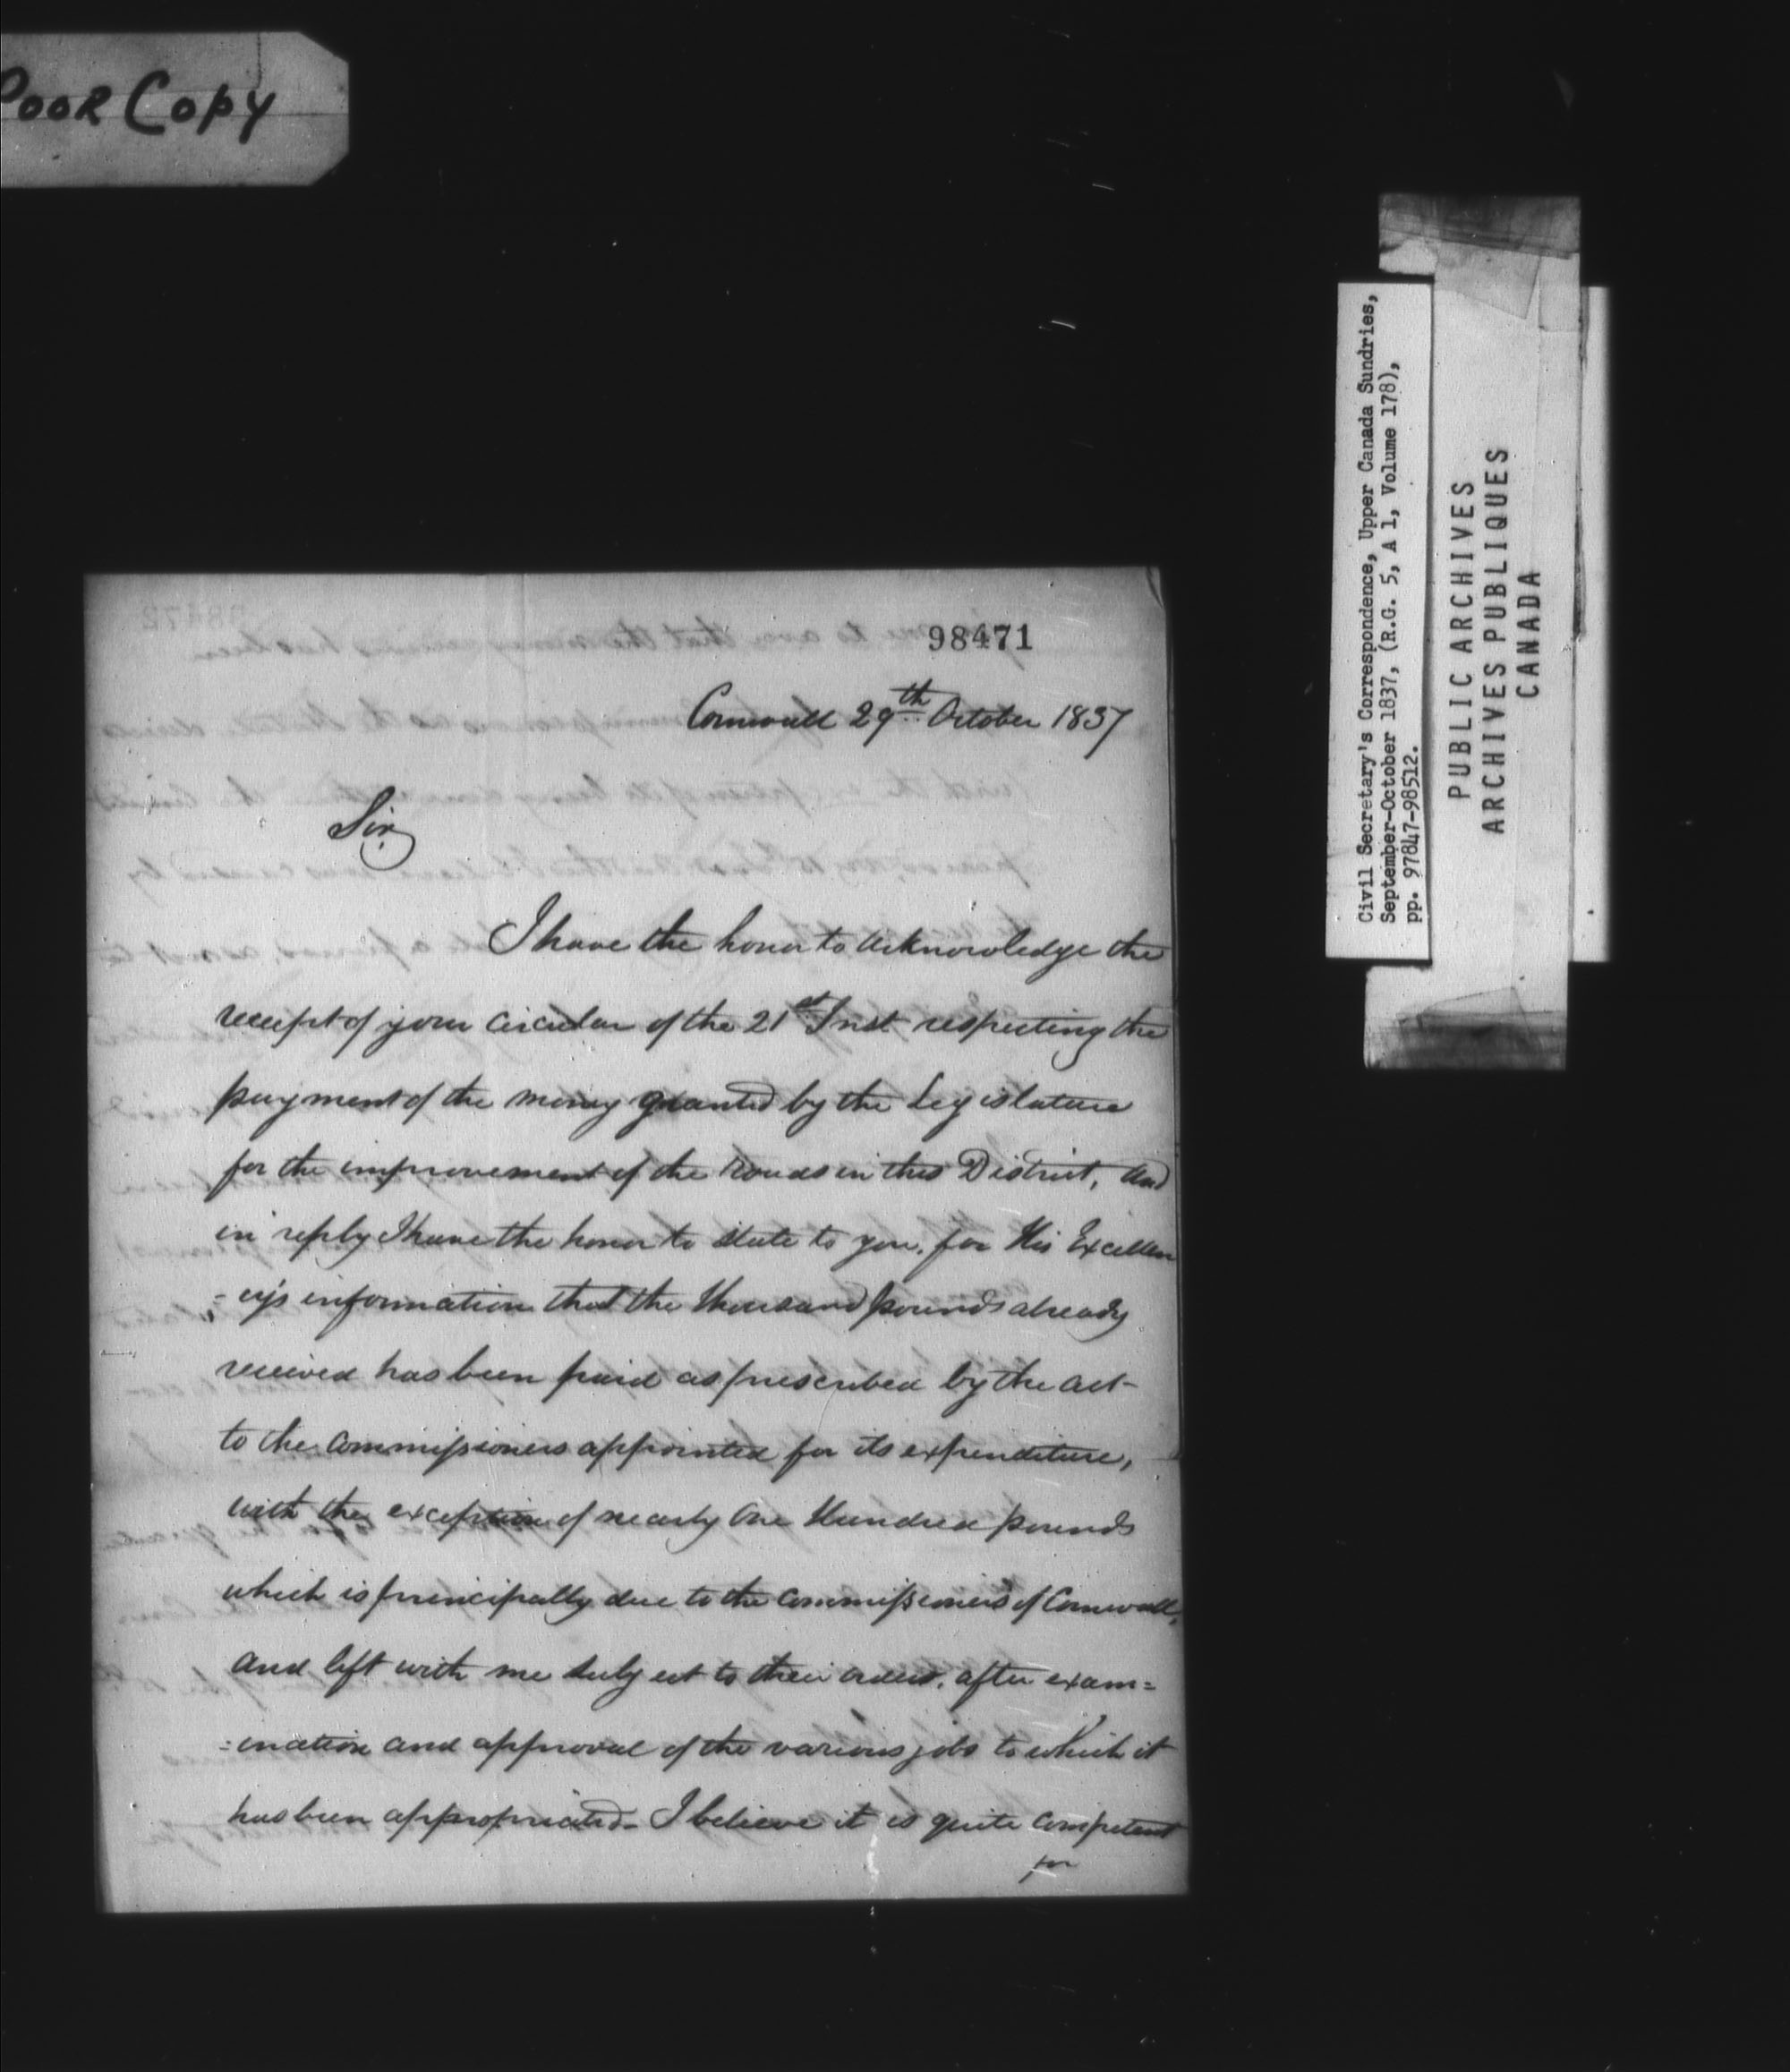 Poor Copy
98471
Cornwall 29th October 1837
Sir,
I have the honor to acknowledge the
receipt of your circular of the 21st Inst respecting the
payment of the money granted by the Legislature
for the improvement of the roads in this District, and
in reply I have the honor to state to you, for His Excellen
=cy's information that the thousand pounds already
received has been paid as prescribed by the act-
to the Commissioners appointed for its expenditure,
with the exception of nearly One Hundred pounds
which is principally due to the Commissioners of Cornwall,
and left with me subject to their orders, after exam=
=ination and approval of the various jobs to which it
has been appropriated - I believe it is quite competent
for
Civil Secretary's Correspondence, Upper Canada Sundries,
September-October 1837, (R.G. 5, A 1, Volume 178),
pp. 97847-98512.
PUBLIC ARCHIVES
ARCHIVES PUBLIQUES
CANADA